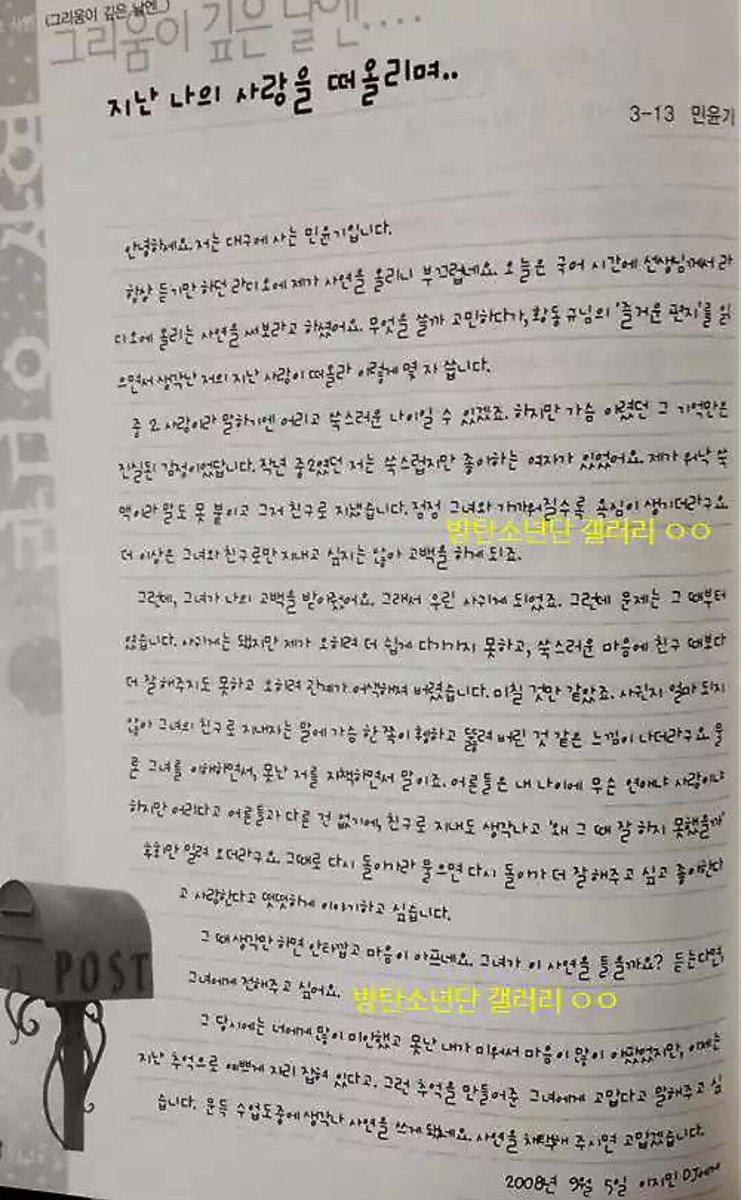 (그리움이 깊은 날엔)
그리움이 깊은 날엔....
지난 나의 사랑을 떠올리며..
3-13 민윤기
안녕하세요. 저는 대구에 사는 민윤기입니다.
항상 듣기만 하던 라디오에 제가 사연을 올리니 부끄럽네요. 오늘은 국어 시간에 선생님께서 라
디오에 올리는 사연을 써보라고 하셨어요. 무엇을 쓸까 고민하다가, 황동규님의 '즐거운 편지'를 읽
으면서 생각난 저의 지난 사랑이 떠올라 이렇게 몇 자 씁니다.
중2 사랑이라 말하기엔 어리고 쑥스러운 나이일 수 있겠죠. 하지만 가슴 아렸던 그 기억만은
진실된 감정이었답니다. 작년 중2였던 저는 쑥스럽지만 좋아하는 여자가 있었어요. 제가 워낙 쑥
맥이라 말도 못 붙이고 그저 친구로 지냈습니다. 점점 그녀와 가까워질수록 욕심이 생기더라구요.
방탄소년단 갤러리 ㅇㅇ
더 이상은 그녀와 친구로만 지내고 싶지는 않아 고백을 하게 되죠.
그런데, 그녀가 나의 고백을 받아줬어요. 그래서 우린 사귀게 되었죠. 그런데 문제는 그 때부터
였습니다. 사귀게는 됐지만 제가 오히려 더 쉽게 다가가지 못하고, 쑥스러운 마음에 친구 때보다
더 잘해주지도 못하고 오히려 관계가 어색해져 버렸습니다. 미칠 것만 같았죠. 사귄지 얼마 되지
않아 그녀의 친구로 지내자는 말에 가슴 한 쪽이 휑하고 뚫려 버린 것 같은 느낌이 나더라구요. 물
론 그녀를 이해하면서, 못난 저를 자책하면서 말이죠. 어른들은 내 나이에 무슨 연애냐 사랑이냐
하지만 어리다고 어른들과 다를 건 없기에, 친구로 지내도 생각나고 '왜 그 때 잘 하지 못했을까'
후회만 밀려 오더라구요. 그때로 다시 돌아가라 물으면 다시 돌아가 더 잘해주고 싶고 좋아한다
고 사랑한다고 떳떳하게 이야기하고 싶습니다.
그 때 생각만 하면 안타깝고 마음이 아프네요. 그녀가 이 사연을 들을까요? 듣는다면,
그녀에게 전해주고 싶어요.
방탄소년단 갤러리 ㅇㅇ
그 당시에는 너에게 많이 미안했고 못난 내가 미워서 마음이 많이 아팠었지만, 이제는
지난 추억으로 예쁘게 자리 잡혀 있다고. 그런 추억을 만들어준 그녀에게 고맙다고 말해주고 싶
습니다. 문득 수업도중에 생각나 사연을 쓰게 됐네요. 사연을 채택해 주시면 고맙겠습니다.
2008년 9월 5일 이지민 DJ에게
POST